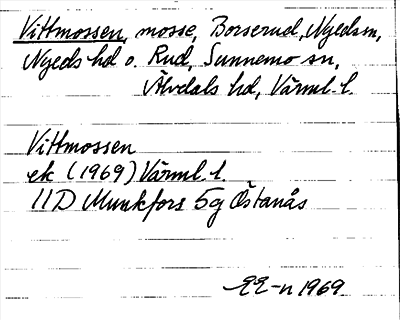 Vittmossen, mosse, Borserud, Nyeds sn,
Nyeds hd o. Rud, Sunnemo sn,
Älvdals hd, Värml. l.
Vittmossen
ek (1969) Värml. l.
11D Munkfors 5g Östanås
EE-n 1969